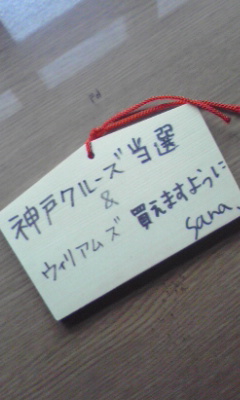 神戸クルーズ当選
&
ウィリアムズ 買えますように
sana.